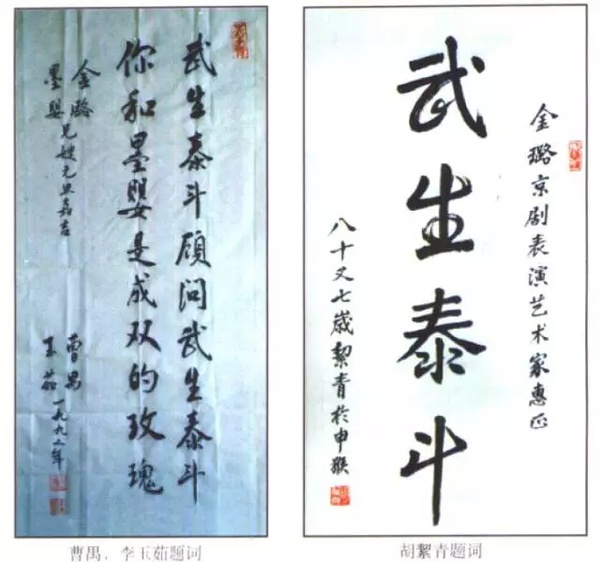 武生泰斗顾问武生泰斗
你和墨婴是成双的玫瑰
金璐
墨婴 兄嫂元旦嘉吉
曹禺
玉茹 一九九二年
曹禺、李玉茹题词
金璐京剧表演艺术家惠正
武生泰斗
八十又七歲絜青於申猴
胡絜青题词